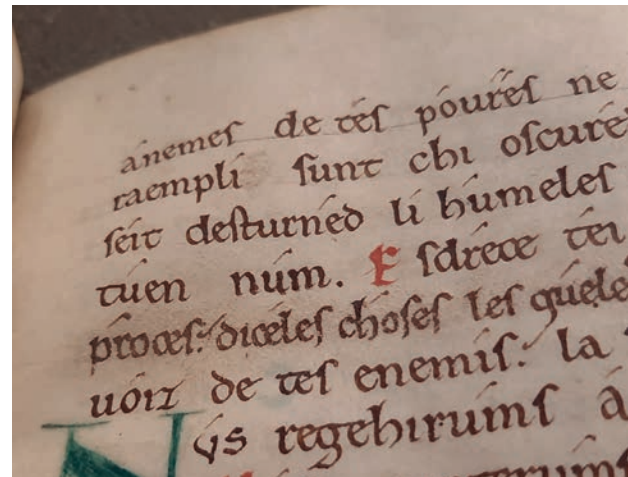 anemes de tes poures ne
raempli sunt chi oscure
seit desturned li humeles
tuen num. Esdrece tei
proces: diceles choses les quele
uoiz de tes enemis: la
Nus regehirums a